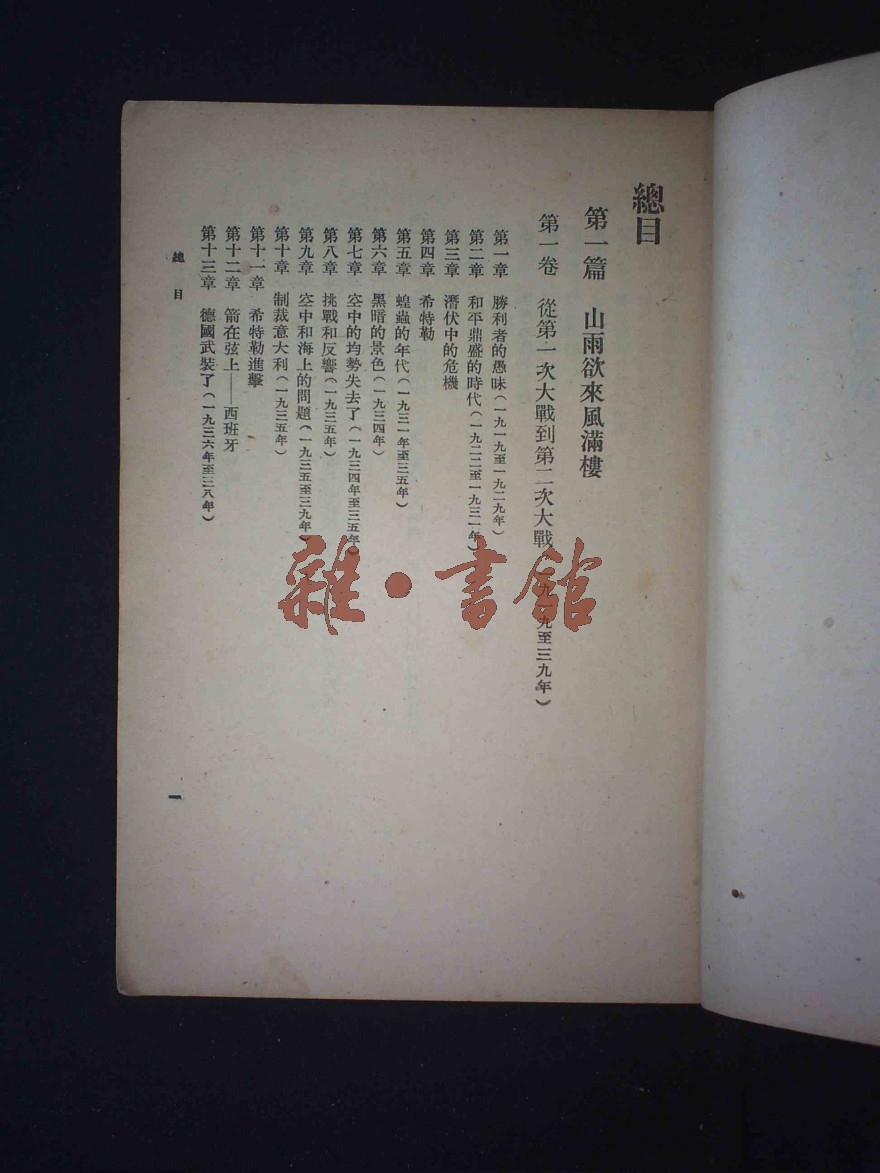 總目
第一篇 山雨欲來風滿樓
第一卷 從第一次大戰到第二次大戰 九一九至三九年）
第一章 勝利者的愚昧（一九一九至一九二九年）
第二章 和平鼎盛的時代（一九二二至一九三一年）
第三章 潛伏中的危機
第四章 希特勒
第五章 蝗蟲的年代（一九三一年至三五年）
第六章 黑暗的景色（一九三四年）
第七章 空中的均勢失去了（一九三四年至三五年）
第八章 挑戰和反響（一九三五年）
第九章 空中和海上的問題（一九三五至三九年）
第十章 制裁意大利（一九三五年）
第十一章 希特勒進擊
第十二章 箭在弦上——西班牙
第十三章 德國武裝了（一九三六年至三八年）
總目
一
雜·書館